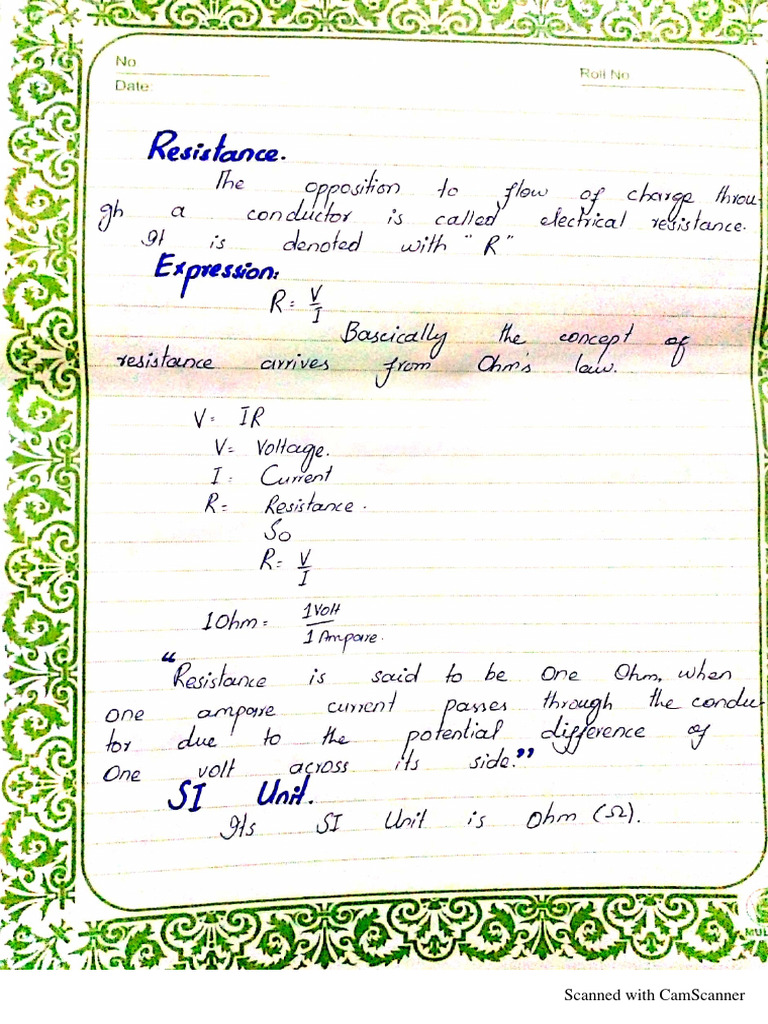 No
Roll No
Date:
Resistance.
The opposition to flow of charge throu-
gh a conductor is called electrical resistance.
It is denoted with "R"
Expression:
R = V/I
Bascically the concept of
resistance arrives from Ohm's law.
V = IR
V = Voltage.
I = Current
R = Resistance.
So
R = V/I
1 Ohm = 1 Volt / 1 Ampare.
"Resistance is said to be one Ohm, when
one ampare current passes through the conduc-
tor due to the potential difference of
One volt across its side."
SI Unit.
Its SI Unit is Ohm (Ω).
MUL
Scanned with CamScanner